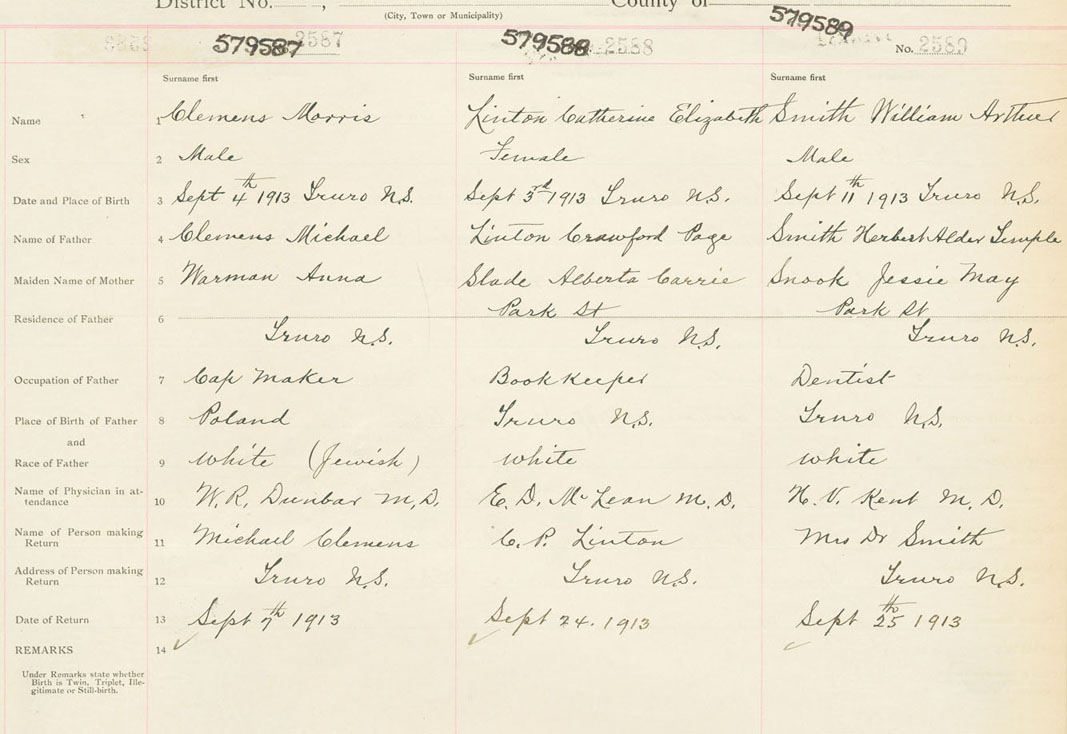 District No. , County of
(City, Town or Municipality)
579587 2587 579588 2588 579589 No. 2589
Surname first Surname first Surname first
Name 1 Clemens Morris Linton Catherine Elizabeth Smith William Arthur
Sex 2 Male Female Male
Date and Place of Birth 3 Sept 4th 1913 Truro N.S. Sept 3rd 1913 Truro N.S. Sept 11th 1913 Truro N.S.
Name of Father 4 Clemens Michael Linton Crawford Page Smith Herbert Alder Temple
Maiden Name of Mother 5 Warman Anna Slade Alberta Carrie Snook Jessie May
Residence of Father 6 Park St Park St
Truro N.S. Truro N.S. Truro N.S.
Occupation of Father 7 Cap Maker Book Keeper Dentist
Place of Birth of Father 8 Poland Truro N.S. Truro N.S.
and
Race of Father 9 white (Jewish) white white
Name of Physician in at-
tendance 10 W.R. Dunbar M.D. E.D. McLean M.D. H.V. Kent M.D.
Name of Person making
Return 11 Michael Clemens C.P. Linton Mrs Dr Smith
Address of Person making
Return 12 Truro N.S. Truro N.S. Truro N.S.
Date of Return 13 Sept 7th 1913 Sept 24. 1913 Sept 25th 1913
REMARKS 14
Under Remarks state whether
Birth is Twin, Triplet, Ille-
gitimate or Still-birth.